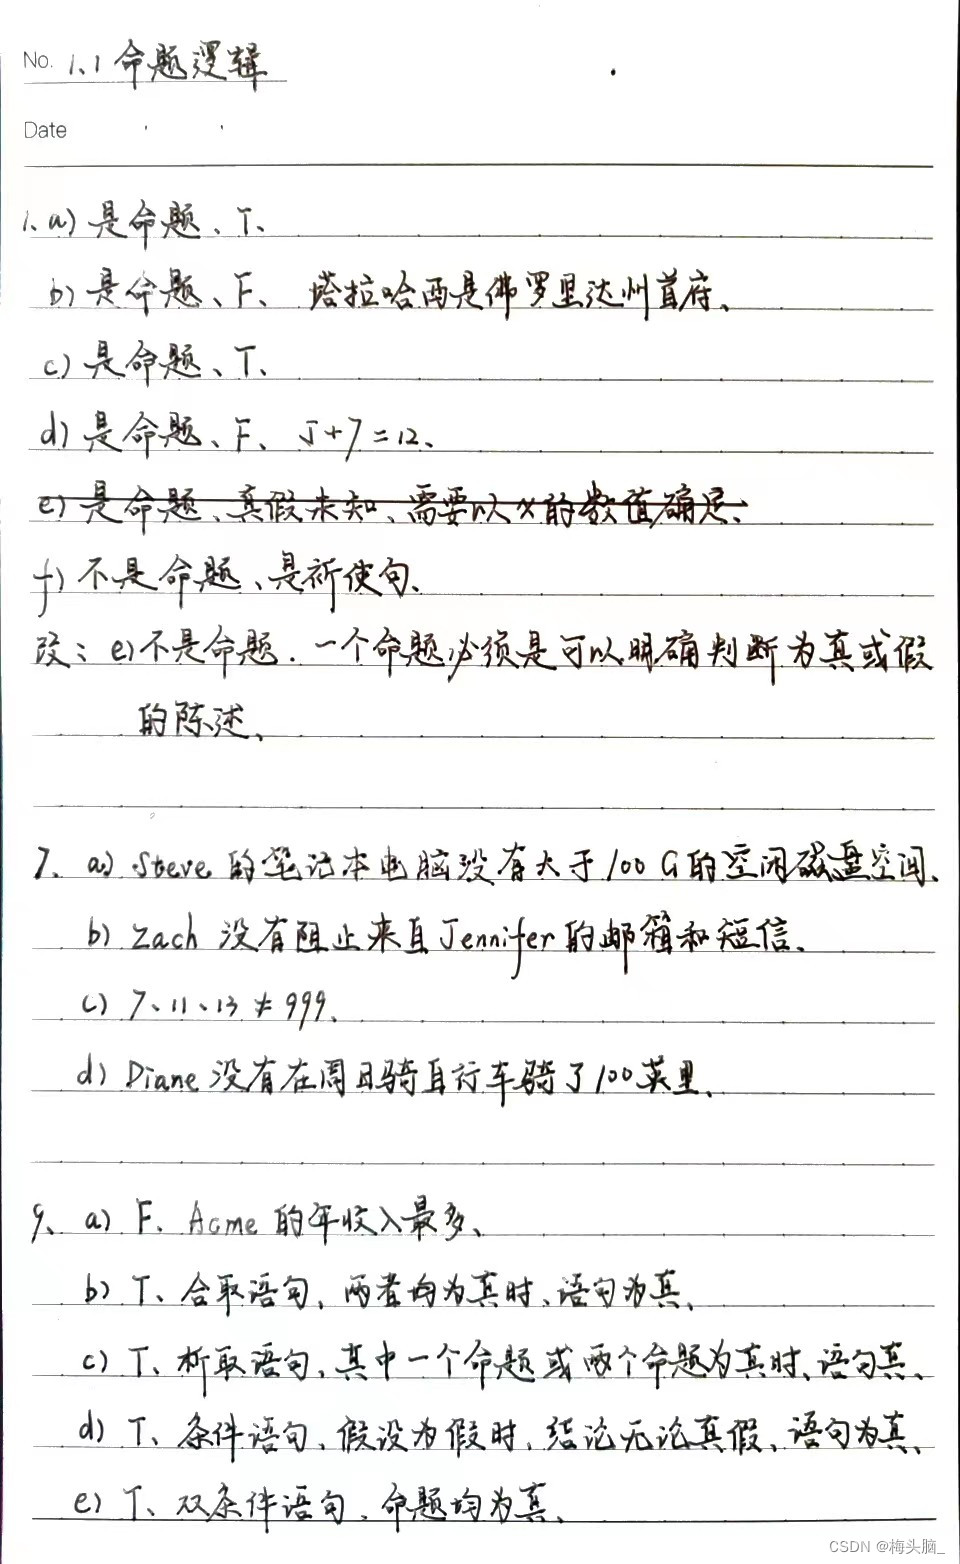 No. 1.1 命题逻辑
Date
1、a) 是命题、T、
b) 是命题、F、 塔拉哈西是佛罗里达州首府、
c) 是命题、T、
d) 是命题、F、 5+7=12、
e) 是命题、真假未知、需要以x的数值确定、
f) 不是命题、是祈使句、
改: e) 不是命题. 一个命题必须是可以明确判断为真或假
的陈述、
7、a) Steve 的笔记本电脑没有大于100G的空闲磁盘空间、
b) Zach 没有阻止来自Jennifer的邮箱和短信、
c) 7、11、13 ≠ 999、
d) Diane 没有在周日骑自行车骑了100英里、
9、a) F、Acme 的年收入最多、
b) T、合取语句、两者均为真时、语句为真、
c) T、析取语句、其中一个命题或两个命题为真时、语句真、
d) T、条件语句、假设为假时、结论无论真假、语句为真、
e) T、双条件语句、命题均为真、
CSDN @梅头脑_